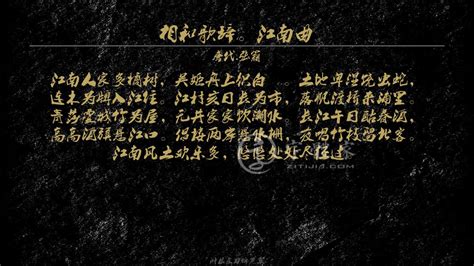 相和歌辞。江南曲
唐代.张籍
江南人家多橘树，吴姬舟上织白 土地卑湿饶虫蛇，
连木为牌入江住。江村亥日长为市，落帆渡桥来浦里。
青莎覆城竹为屋，无井家家饮潮水。长江午日酤春酒，
高高酒旗悬江口。倡楼两岸悬水栅，夜唱竹枝留北客
江南风土欢乐多，悠悠处处尽经过